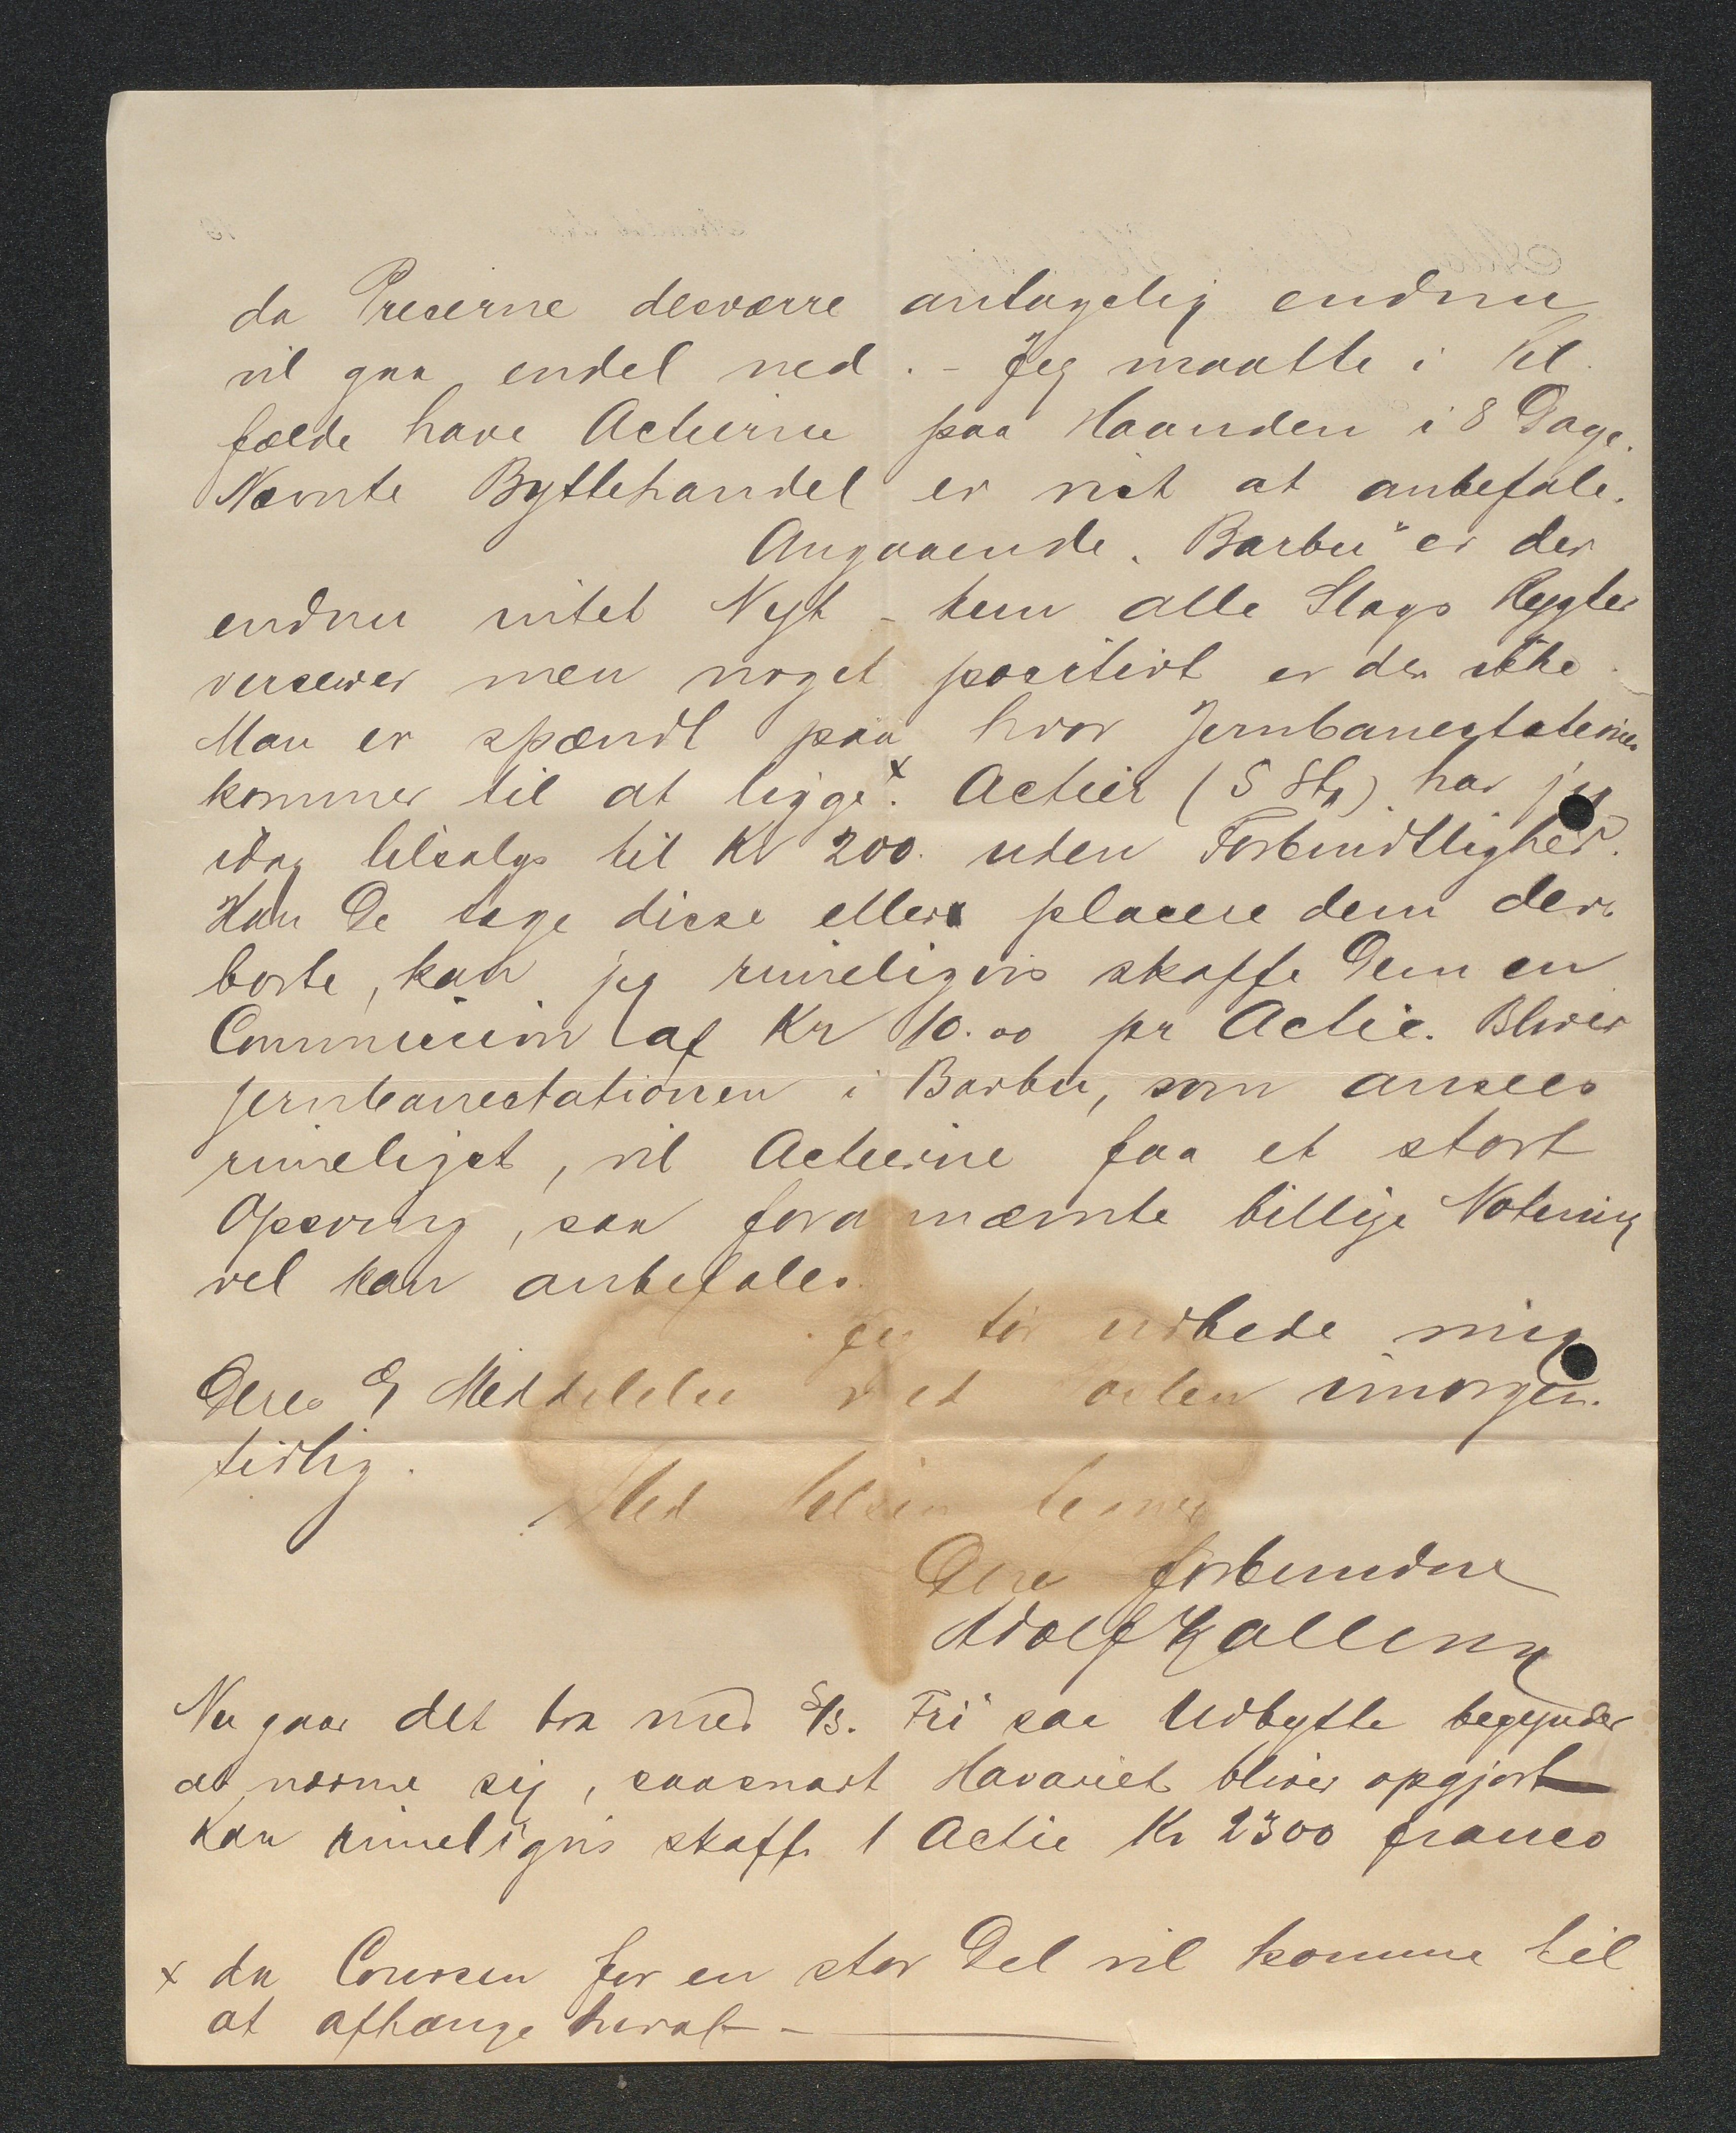 da Preserne desværre antagelig endnu
vil gaa endel ned. - Jeg maatte i Til
fælde have Actierne paa Haanden i 8 Dage.
Nævnte Byttehandel er vist at anbefale.
Angaaende „Barbu" er der
endnu intet Nyt - tem alle Slags Rygter
verserer men noget positivt er der ikke.
Man er spændt paa hvor Jernbanestationen
kommer til at ligge x. Actier (5 Stk) har jeg
idag tilsalgs til Kr 200. uden Forbindtlighed.
Kan De tage disse eller placere dem der-
borte, kan jeg rimeligvis skaffe Dem en
Commission af Kr 10.00 pr Actie. Bliver
Jernbanestationen i Barbu, som ansees
rimeligst, vil Actierne faa et stort
Opsving, saa forannævnte billige Notering
vel kan anbefales.
Jeg tør udbede mig
Deres Meddelelse imorgen.
tidlig.
Med
Deres forbundne
Adolf Kallevig
Nu gaar det bra med S/S. „Fri" saa Udbytte begynder
at nærme sig, saasnart Havariet bliver opgjort
Kan rimeligvis skaffe 1 Actie Kr 2300 franco
x da Coursen for en stor Del vil komme til
at afhænge heraf -